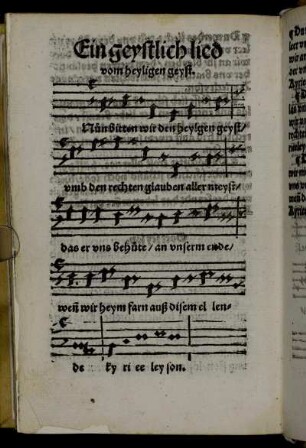 Ein geystlich lied
vom heyligen geyst.
Nün bitten wir den heylgen geyst/
vmb den rechten glauben aller meyst/
das er vns behüte/ an vnserm ende/
weñ wir heym farn auß disem el len-
de ky ri ee ley son.